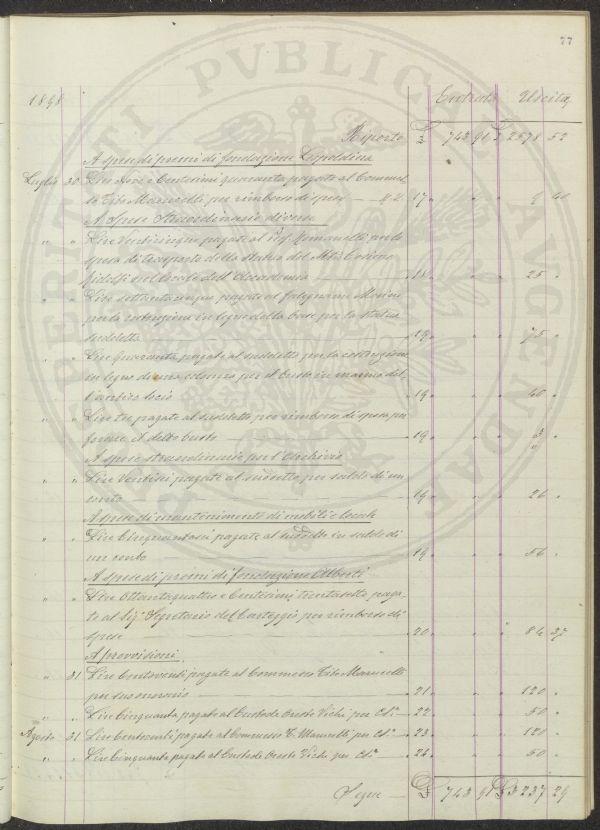 77
1898 Entrata Uscita
Riporto £ 743 91 £ 2578 52
A spese di premi di fondazione Leopoldina
Luglio 30 Lire Nove e Centesimi quaranta pagate al Commes
so Tito Marucelli per rimborso di spese — 17 " " 9 40
A Spese Straordinarie diverse
" " Lire Venticinque pagate al Prof. Romanelli per le
spese di trasporto della statua del March Cosimo
Ridolfi nel locale dell'Accademia 18 " " 25 "
" " Lire settantacinque pagate al falegname Marini
per la costruzione in legno della base per la statua
suddetta 19 " " 75 "
" " Lire Quaranta pagate al suddetto per la costruzione
in legno di una colonna per il busto in marmo del
l'antico socio 19 " " 40 "
" " Lire tre pagate al suddetto per rimborso di spese per
fermare il detto busto 19 " " 3 "
A spese straordinarie per l'Archivio
" " Lire Ventisei pagate al suddetto per saldo di un
conto 19 " " 26 "
A spese di mantenimento di mobili e locale
" " Lire Cinquantasei pagate al suddetto in saldo di
un conto 19 " " 56 "
A spese di premi di fondazione Alberti
" " Lire Ottantaquattro e Centesimi trentasette paga
te al Sig. Segretario del Carteggio per rimborso di
spese 20 " " 84 37
A provvisioni
" 31 Lire Centoventi pagate al Commesso Tito Marucelli
per suo onorario 21 " " 120 "
" " Lire Cinquanta pagate al Custode Oreste Vichi per Cto 22 " " 50 "
Agosto 31 Lire Centoventi pagate al Commesso T. Marucelli per Cto 23 " " 120 "
" " Lire Cinquanta pagate al Custode Oreste Vichi per Cto 24 " " 50 "
Segue £ 743 91 £ 3237 29